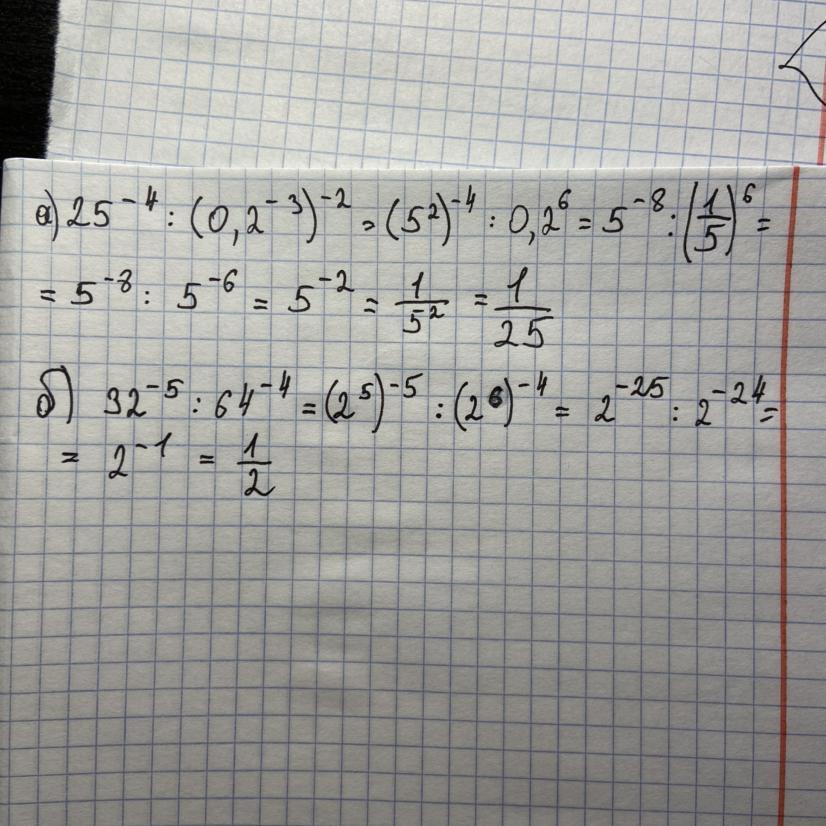 а) 25⁻⁴ : (0,2⁻³)⁻² = (5²)⁻⁴ : 0,2⁶ = 5⁻⁸ : (1/5)⁶ =
= 5⁻⁸ : 5⁻⁶ = 5⁻² = 1/5² = 1/25
б) 32⁻⁵ : 64⁻⁴ = (2⁵)⁻⁵ : (2⁶)⁻⁴ = 2⁻²⁵ : 2⁻²⁴ =
= 2⁻¹ = 1/2